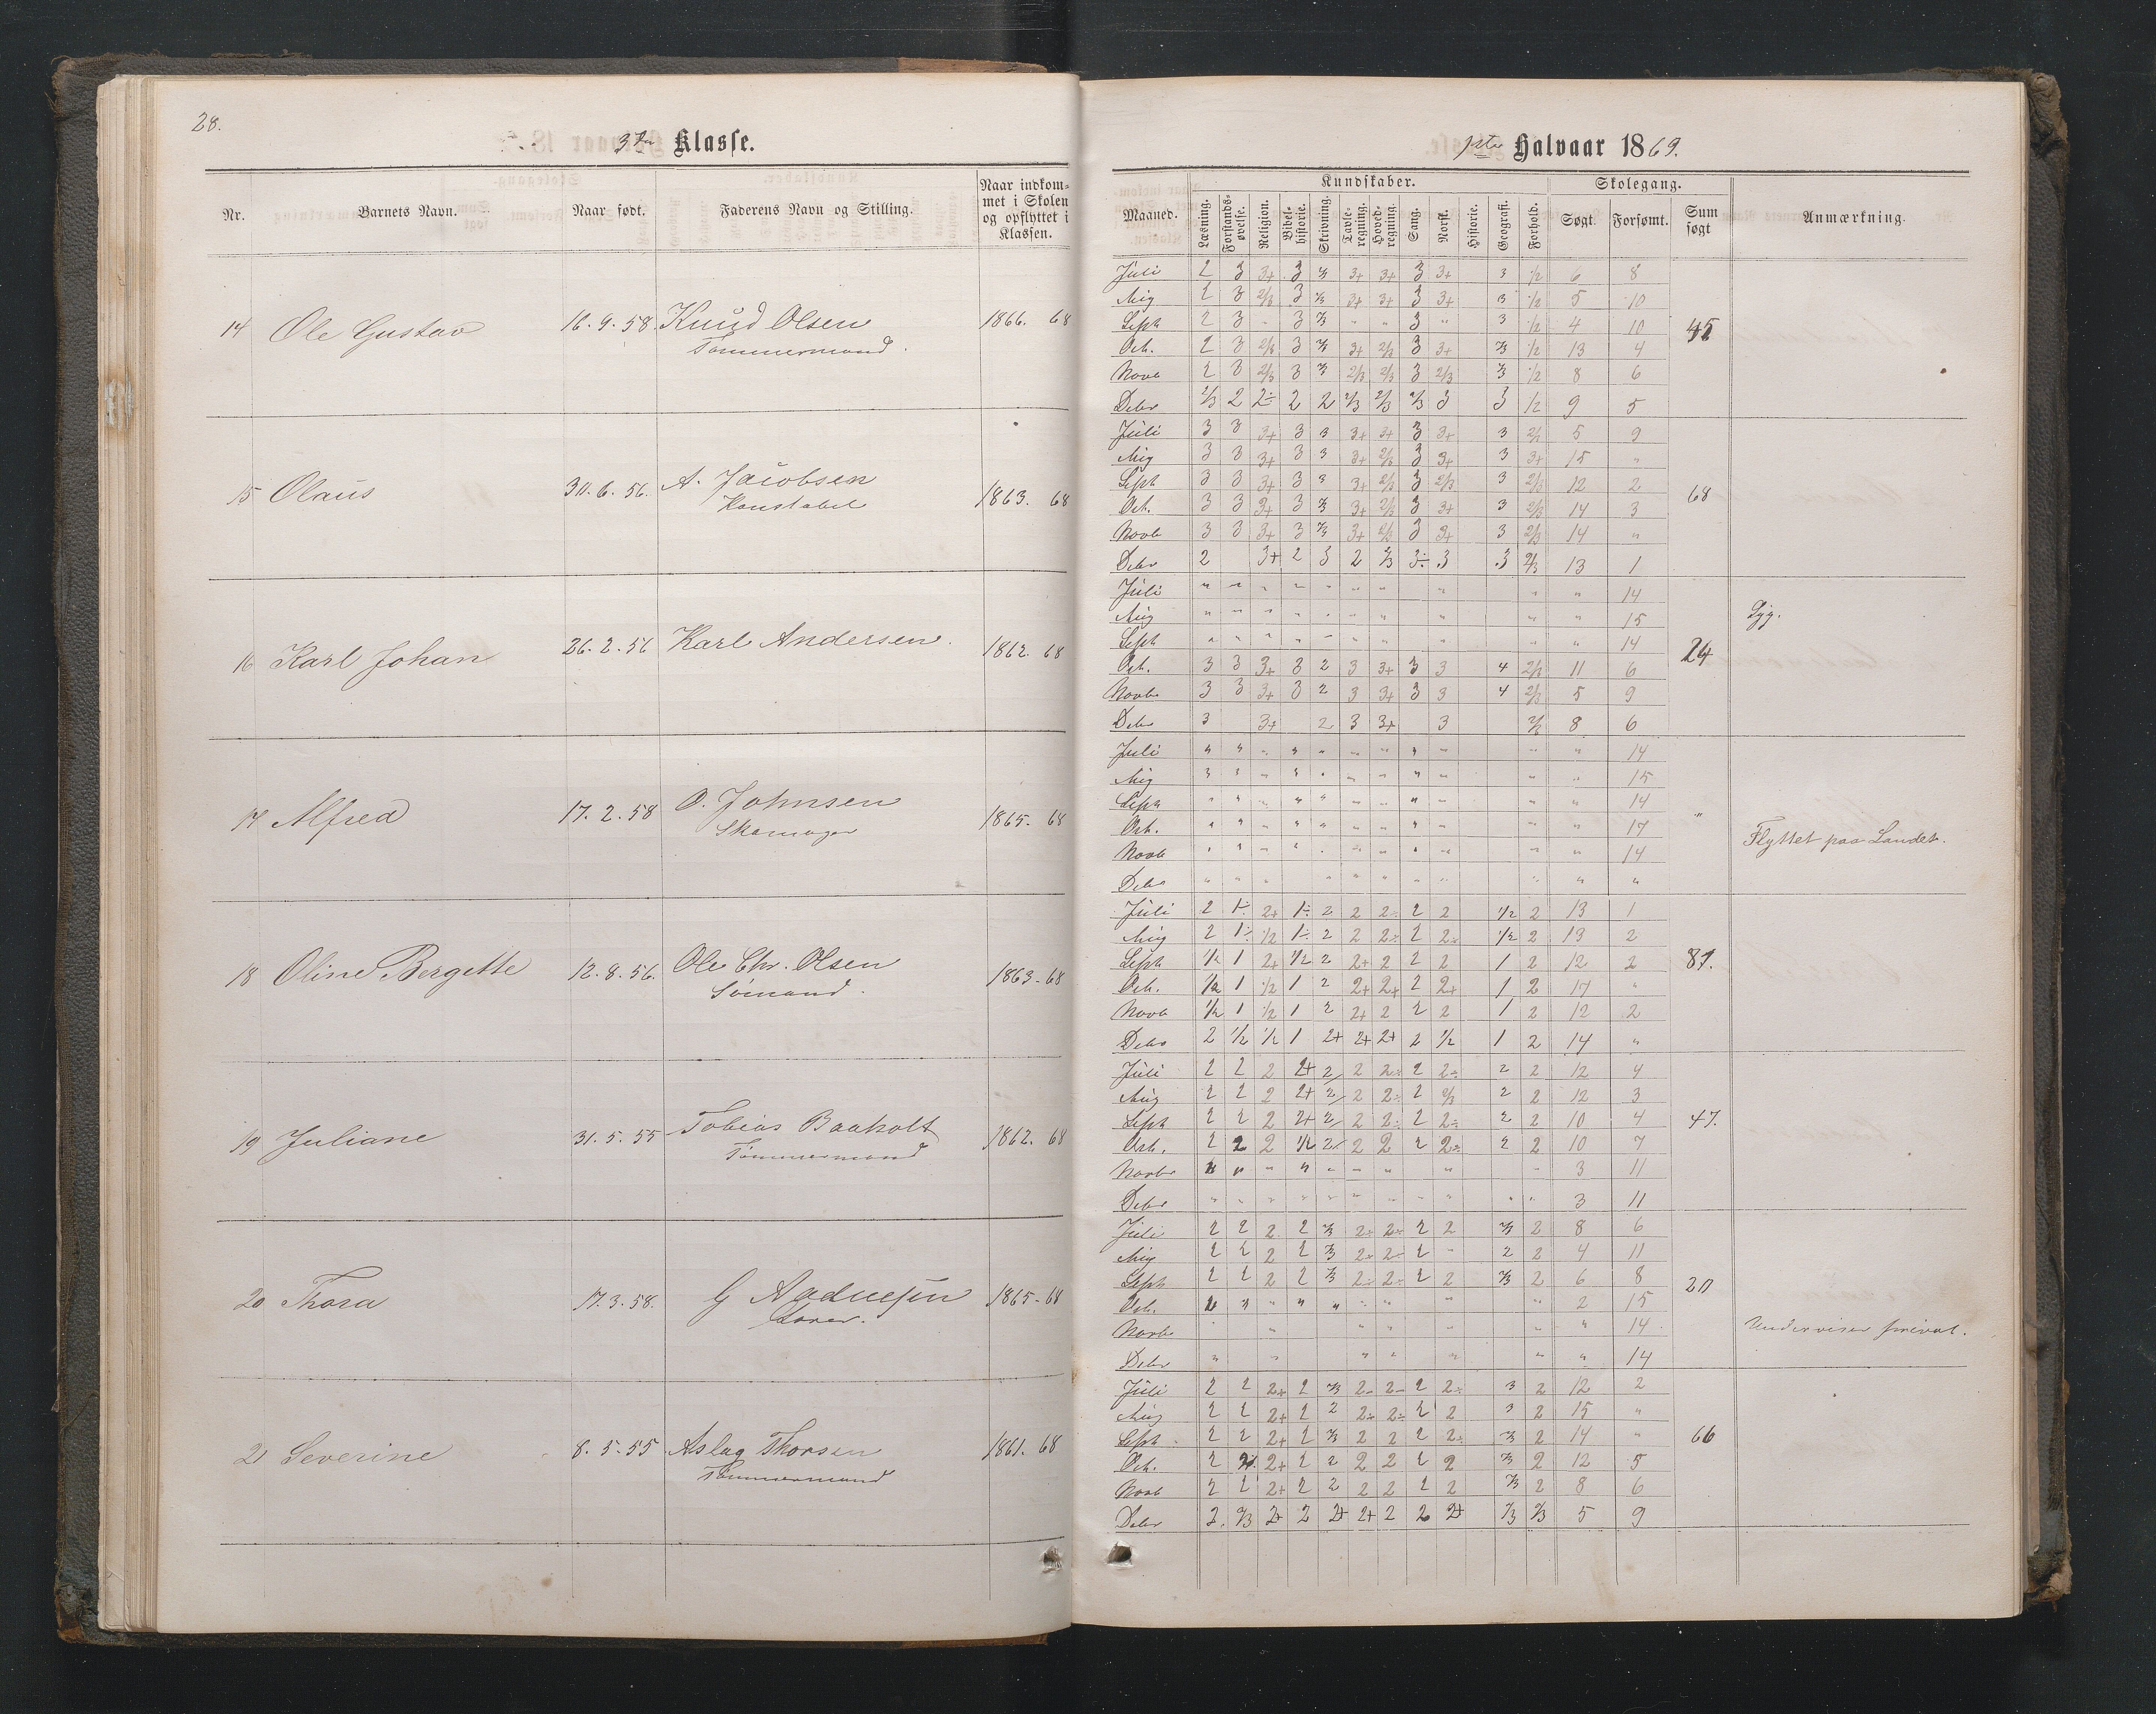 28.
3die Klasse.
Nr. Barnets Navn. Naar født. Faderens Navn og Stilling. Naar indkommet i Skolen og opflyttet i Klassen.
14 Ole Gustav 16. 9. 58. Knud Olsen 1866. 68
Tømmermand.
15 Olaus 30. 6. 56. A. Jacobsen 1863. 68
Konstabel
16 Karl Johan 26. 2. 56 Karl Andersen. 1862. 68
17 Alfred 17. 2. 58 O. Johnsen 1865. 68
Skomager
18 Oline Bergette 12. 8. 56. Ole Chr. Olsen 1863-68
Sømand.
19 Juliane 31. 5. 55 Tobias Baaholt 1862. 68
Tømmermand
20 Thora 17. 3. 58. G 1865-68
21 Severine 8. 5. 55 Aslag Thorsen 1861. 68
Tømmermand
1ste Halvaar 1869.
Maaned. Kundskaber. Skolegang. Sum søgt Anmærkning.
Læsning. Forstandsøvelse. Religion. Bibelhistorie. Skrivning. Tavleregning. Hovedregning. Sang. Norsk. Historie. Geografi. Forhold. Søgt. Forsømt.
Juli 2 3 3+ 3 2/3 3+ 3+ 3 3+ 3 1/2 6 8
Aug 2 3 2/3 3 2/3 3+ 3+ 3 3+ 3 1/2 5 10
Sept 2 3 " 3 2/3 " " 3 " 3 1/2 4 10 45
Oct. 2 3 2/3 3 2/3 3+ 2/3 3 3+ 2/3 1/2 13 4
Novb 2 3 2/3 3 2/3 2/3 2/3 3 2/3 2/3 1/2 8 6
Debr 2/3 2 2÷ 2 2 2/3 2/3 2/3 3 3 1/2 9 5
Juli 3 3 3+ 3 3 3+ 3+ 3 3+ 3 2/3 5 9
Aug 3 3 3+ 3 3 3+ 2/3 3 3+ 3 3+ 15 "
Sept 3 3 3+ 3 3 3+ 2/3 3 2/3 3 2/3 12 2 68
Oct. 3 3 3+ 3 2/3 3+ 2/3 3 3+ 3 2/3 14 3
Novb 3 3 3+ 3 2/3 3+ 2/3 3 3+ 3 2/3 14 "
Debr 2 3+ 2 3 2 2/3 3÷ 3 3 2/3 13 1
Juli " " " " " " " " " " 14
Aug " " " " " " " " " " 15 Syg.
Sept " " " " " " " " " " 14 24
Oct. 3 3 3+ 3 2 3 3+ 3 3 4 2/3 11 6
Novbr 3 3 3+ 3 2 3 3+ 3 3 4 2/3 5 9
Debr 3 3+ 2 3 3+ 3 2/3 8 6
Juli " " " " " " " " " " " 14
Aug " " " " " " " " " " " 15
Sept " " " " " " " " " " " 14 "
Oct. " " " " " " " " " " " 17 Flyttet paa Landet.
Novb " " " " " " " " " " " 14
Debr " " " " " " " " " " "
Juli 2 1÷ 2+ 1÷ 2 2 2÷ 2 2 1/2 2 13 1
Aug 2 1÷ 1/2 1÷ 2 2 2÷ 2 2÷ 1/2 2 13 2
Sept 1/2 1 2+ 1/2 2 2+ 2 2 2 1 2 12 2 81.
Oct. 1/2 1 1/2 1 2 2+ 2+ 2 2+ 1 2 17 "
Novb 1/2 1 1/2 1 2 2+ 2 2 2 1 2 12 2
Debr 2 1/2 1/2 1 2+ 2+ 2+ 2 1/2 1 2 14 "
Juli 2 2 2 2+ 2 2 2÷ 2 2÷ 2 2 12 4
Aug 2 2 2 2+ 2 2 2÷ 2 2/3 2 2 12 3
Sept 2 2 2 2+ 2 2 2÷ 2 2÷ 2 2 10 4 47.
Oct. 2 2 2 1/2 2 2 2 2 2÷ 2 2 10 7
Novbr " " " " " " " " " 3 11
Debr " " " " " " " " " " " 3 11
Juli 2 2 2 2 2/3 2÷ 2÷ 2 2 2/3 2 8 6
Aug 2 2 2 2 2/3 2÷ 2÷ 2 " 2 2 4 11
Sept 2 2 2 2 2/3 2÷ 2÷ 2 2 2/3 2 6 8 20
Oct. " " " " " " " " 2 15
Novb " " " " " " 14 Underviser privat.
Debr " " " " " " " 14
Juli 2 2 2+ 2 2/3 2÷ 2÷ 2 2÷ 3 2 12 2
Aug 2 2 2+ 2 2 2÷ 2÷ 2 2 3 2 15 "
Sept 2 2 2+ 2 2/3 2 2 2 2÷ 2/3 2 14 " 66
Oct. 2 2 2+ 2 2 2 2 2 2 2/3 2 12 5
Novb 2 2 2+ 2 2 2 2 2 2 2/3 2 8 6
Debr 2 2/3 2+ 2 2+ 2+ 2 2 2+ 2/3 2/3 5 9